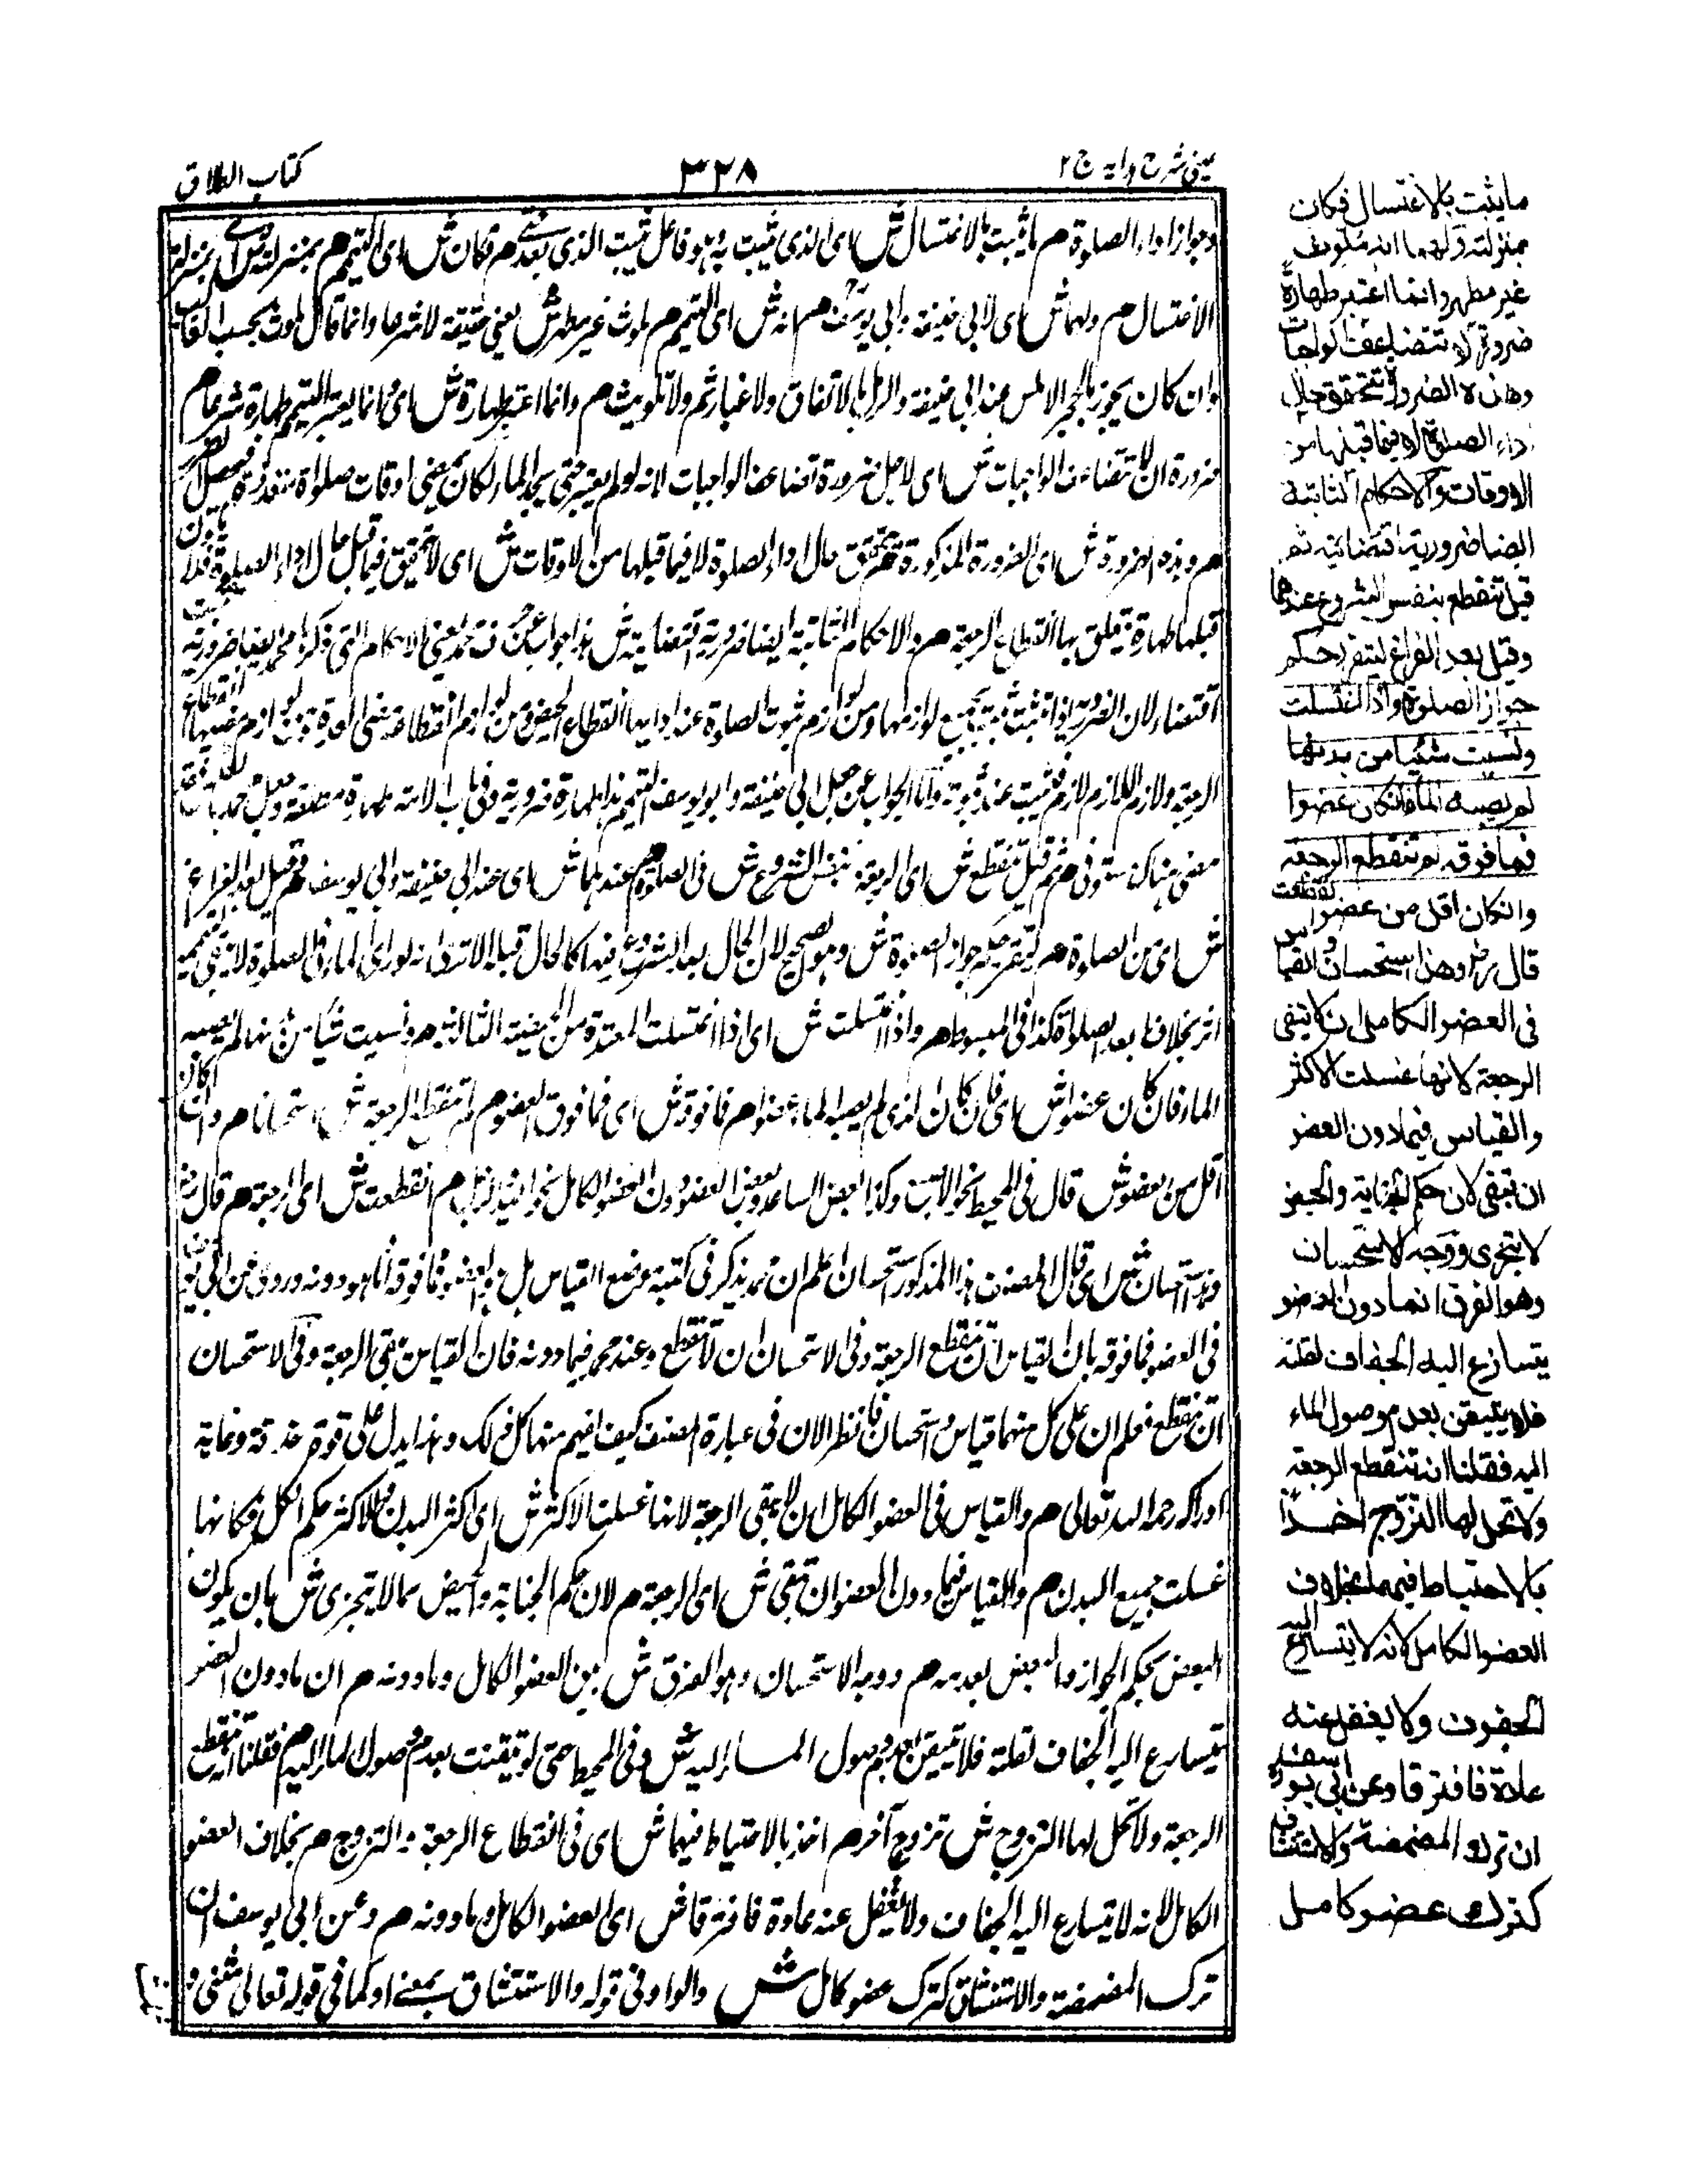 عینی شرح ہدایہ ج ۲
۳۲۸
كتاب الطلاق
وجواز اداء الصلوة م ما يثبت بالاغتسال ش اى الذى ثبت به وهو فاعل يثبت الذى بعده م فكان ش اى التيمم م بمنزلته ش اى بمنزلة
الاغتسال م ولهما ش اى لابى حنيفة وابى يوسف م انه ش اى التيمم م ملوث غير مطهر ش يعنى حقيقة لا شرعا وانما قال ملوث بحسب الغالب
وان كان يجوز بالحجر الاملس عند ابى حنيفة والرمل بالاتفاق ولا غبار ثم ولا تلويث م وانما اعتبر طهارة ش اى وانما يعتبر التيمم طهارة شرعا م
ضرورة ان لا تتضاعف الواجبات ش اى لاجل ضرورة تضاعف الواجبات لانه لو لم يعتبر حتى يجد الماء لكان يمضى اوقات صلوات متعددة فيحصل الضرر
م وهذه الضرورة ش اى الضرورة المذكورة م تتحقق حال اداء الصلوة لا فيما قبلها من الاوقات ش اى لا تتحقق فيما قبل حال اداء الصلوة فلا يكون
قبلها طهارة فيتعلق بها انقطاع الرجعة م والاحكام الثابتة ايضا ضرورية اقتضائية ش هذا جواب عن محمد يعنى الاحكام التى ذكرها محمد ايضا ضرورية تثبت
اقتضاء لان الضرورى اذا ثبت ثبت بجميع لوازمها ومن لوازم ثبوت الصلوة عند ادائها انقطاع الحيض ومن لوازم انقطاعه مضى العدة ومن لوازم مضيها انقطاع
الرجعة ولازم اللازم لازم فيثبت عند ثبوته واما الجواب عن جعل ابى حنيفة وابو يوسف التيمم هذا طهارة ضرورية وفى باب الامامة طهارة مطلقة وجعل محمد
مضى هناك مستوفى م ثم قيل تنقطع ش اى الرجعة بنفس الشروع ش فى الصلوة م عندهما ش اى عند ابى حنيفة وابى يوسف م وقيل بعد الفراغ
ش اى من الصلوة م ليتقرر حكم جواز الصلوة ش وهو الصحيح لان الحال بعد الشروع فيها كالحال قبله الا ترى انه لو راى الماء فى الصلوة لا يبقى للتيمم
اثر بخلاف ما بعد الصلوة كذا فى المبسوط م واذا اغتسلت ش اى اذا اغتسلت المعتدة من الحيضة الثالثة م ونسيت شيئا من بدنها لم يصبه
الماء فان كان عضوا ش اى فان كان الذى لم يصبه الماء عضوا م فما فوقه ش اى فما فوق العضو م لم تنقطع الرجعة ش استحسانا م وان كان
اقل من عضو ش قال فى المحيط نحو الاصبع وكذا بعض الساعد وبعض العضو دون العضو الكامل نحو اليد والرجل م انقطعت ش اى الرجعة م قال رض
وهذا استحسان ش اى قال المصنف هذا المذكور استحسان اعلم ان محمدا لم يذكر فى كتبه موضع القياس بل هو العضو فما فوقه او ما هو دونه وروى عن ابى يوسف
فى العضو فما فوقه بان القياس ان تنقطع الرجعة وفى الاستحسان ان لا تنقطع وعند محمد فيما دونه فان القياس ان تبقى الرجعة وفى الاستحسان
ان تنقطع فعلم ان على كل منهما قياس واستحسان فانظر الان فى عبارة المصنف كيف افهم منها كل ذلك وهذا يدل على قوة حذقه وغاية
ادراكه رحمه الله تعالى م والقياس فى العضو الكامل ان لا تبقى الرجعة لانها غسلت الاكثر ش اى اكثر البدن وللاكثر حكم الكل فكانها
غسلت جميع البدن م والقياس فيما دون العضو ان تبقى ش اى الرجعة م لان حكم الجنابة والحيض مما لا يتجزى ش بان يكون
البعض بحكم الجواز والبعض بعدمه م ووجه الاستحسان وهو الفرق ش بين العضو الكامل وما دونه م ان ما دون العضو
يتسارع اليه الجفاف لقلته فلا يتيقن بعدم وصول الماء اليه ش وفى المحيط حتى لو تيقنت بعدم وصول الماء اليه م فقلنا انه تنقطع
الرجعة ولا تحل لها التزوج ش تزوج آخر م اخذا بالاحتياط فيهما ش اى فى انقطاع الرجعة والتزوج م بخلاف العضو
الكامل لانه لا يتسارع اليه الجفاف ولا يغفل عنه عادة فافترقا ش اى العضو الكامل وما دونه م وعن ابى يوسف ان
ترك المضمضة والاستنشاق كترك عضو كامل ش والواو فى قوله والاستنشاق بمعنى او كما فى قوله تعالى مثنى و
ما يثبت بالاغتسال فكان
بمنزلته ولهما انه ملوث
غير مطهر وانما اعتبر طهارة
ضرورة ان لا تتضاعف الواجبات
وهذه الضرورة تتحقق حال
اداء الصلوة لا فيما قبلها من
الاوقات والاحكام الثابتة
ايضا ضرورية اقتضائية ثم
قيل تنقطع بنفس الشروع عندهما
وقيل بعد الفراغ ليتقرر حكم
جواز الصلوة واذا اغتسلت
ونسيت شيئا من بدنها
لم يصبه الماء فان كان عضوا
فما فوقه لم تنقطع الرجعة
وان كان اقل من عضو انقطعت
قال رض وهذا استحسان والقياس
فى العضو الكامل ان لا تبقى
الرجعة لانها غسلت الاكثر
والقياس فيما دون العضو
ان تبقى لان حكم الجنابة والحيض
لا يتجزى ووجه الاستحسان
وهو الفرق ان ما دون العضو
يتسارع اليه الجفاف لقلته
فلا يتيقن بعدم وصول الماء
اليه فقلنا انه تنقطع الرجعة
ولا تحل لها التزوج اخذا
بالاحتياط فيهما بخلاف
العضو الكامل لانه لا يتسارع اليه
الجفوف ولا يغفل عنه
عادة فافترقا وعن ابى يوسف
ان ترك المضمضة والاستنشاق
كترك عضو كامل